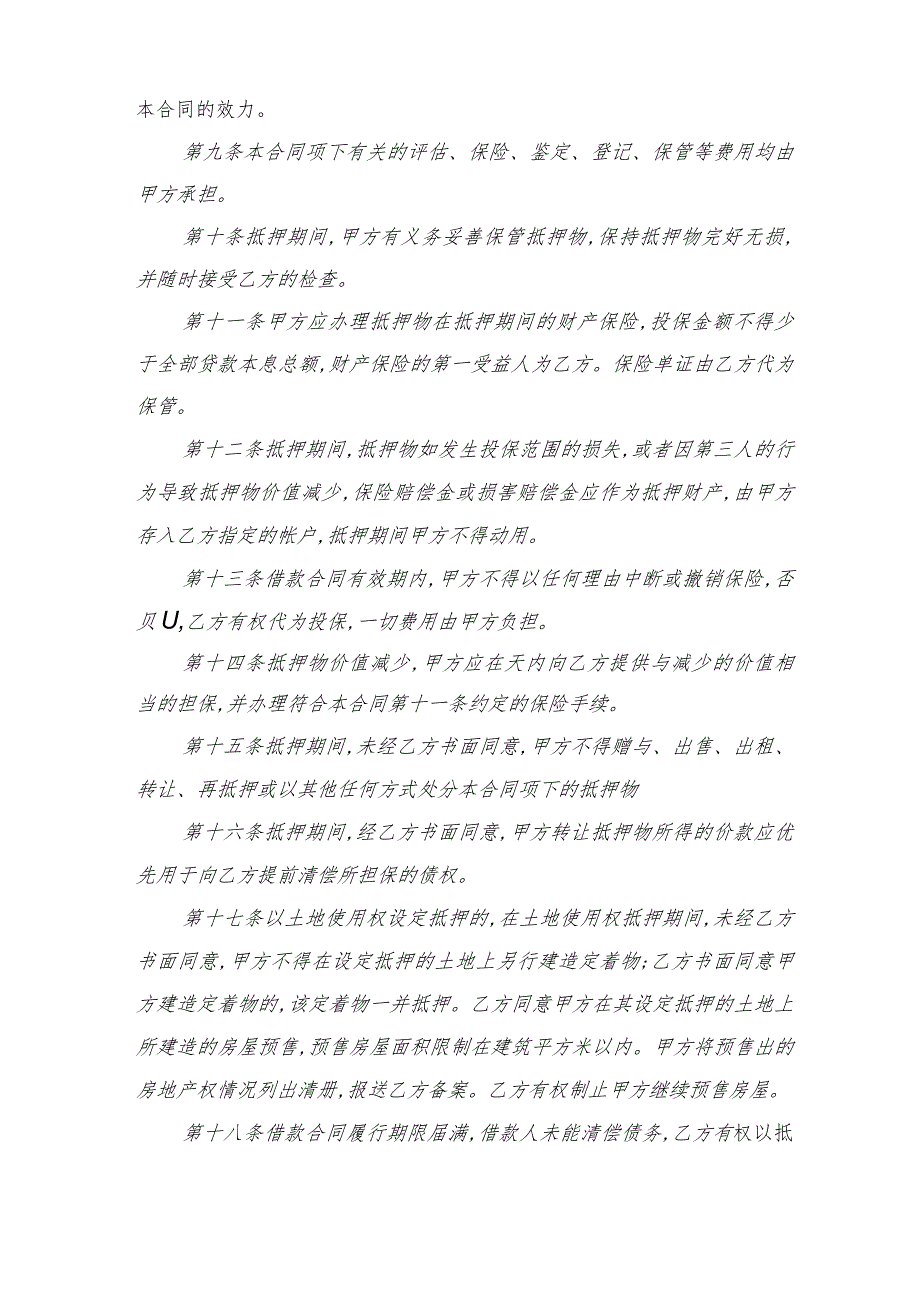 本合同的效力。
第九条本合同项下有关的评估、保险、鉴定、登记、保管等费用均由
甲方承担。
第十条抵押期间,甲方有义务妥善保管抵押物,保持抵押物完好无损,
并随时接受乙方的检查。
第十一条甲方应办理抵押物在抵押期间的财产保险,投保金额不得少
于全部贷款本息总额,财产保险的第一受益人为乙方。保险单证由乙方代为
保管。
第十二条抵押期间,抵押物如发生投保范围的损失,或者因第三人的行
为导致抵押物价值减少,保险赔偿金或损害赔偿金应作为抵押财产,由甲方
存入乙方指定的帐户,抵押期间甲方不得动用。
第十三条借款合同有效期内,甲方不得以任何理由中断或撤销保险,否
贝U,乙方有权代为投保,一切费用由甲方负担。
第十四条抵押物价值减少,甲方应在天内向乙方提供与减少的价值相
当的担保,并办理符合本合同第十一条约定的保险手续。
第十五条抵押期间,未经乙方书面同意,甲方不得赠与、出售、出租、
转让、再抵押或以其他任何方式处分本合同项下的抵押物
第十六条抵押期间,经乙方书面同意,甲方转让抵押物所得的价款应优
先用于向乙方提前清偿所担保的债权。
第十七条以土地使用权设定抵押的,在土地使用权抵押期间,未经乙方
书面同意,甲方不得在设定抵押的土地上另行建造定着物;乙方书面同意甲
方建造定着物的,该定着物一并抵押。乙方同意甲方在其设定抵押的土地上
所建造的房屋预售,预售房屋面积限制在建筑平方米以内。甲方将预售出的
房地产权情况列出清册,报送乙方备案。乙方有权制止甲方继续预售房屋。
第十八条借款合同履行期限届满,借款人未能清偿债务,乙方有权以抵